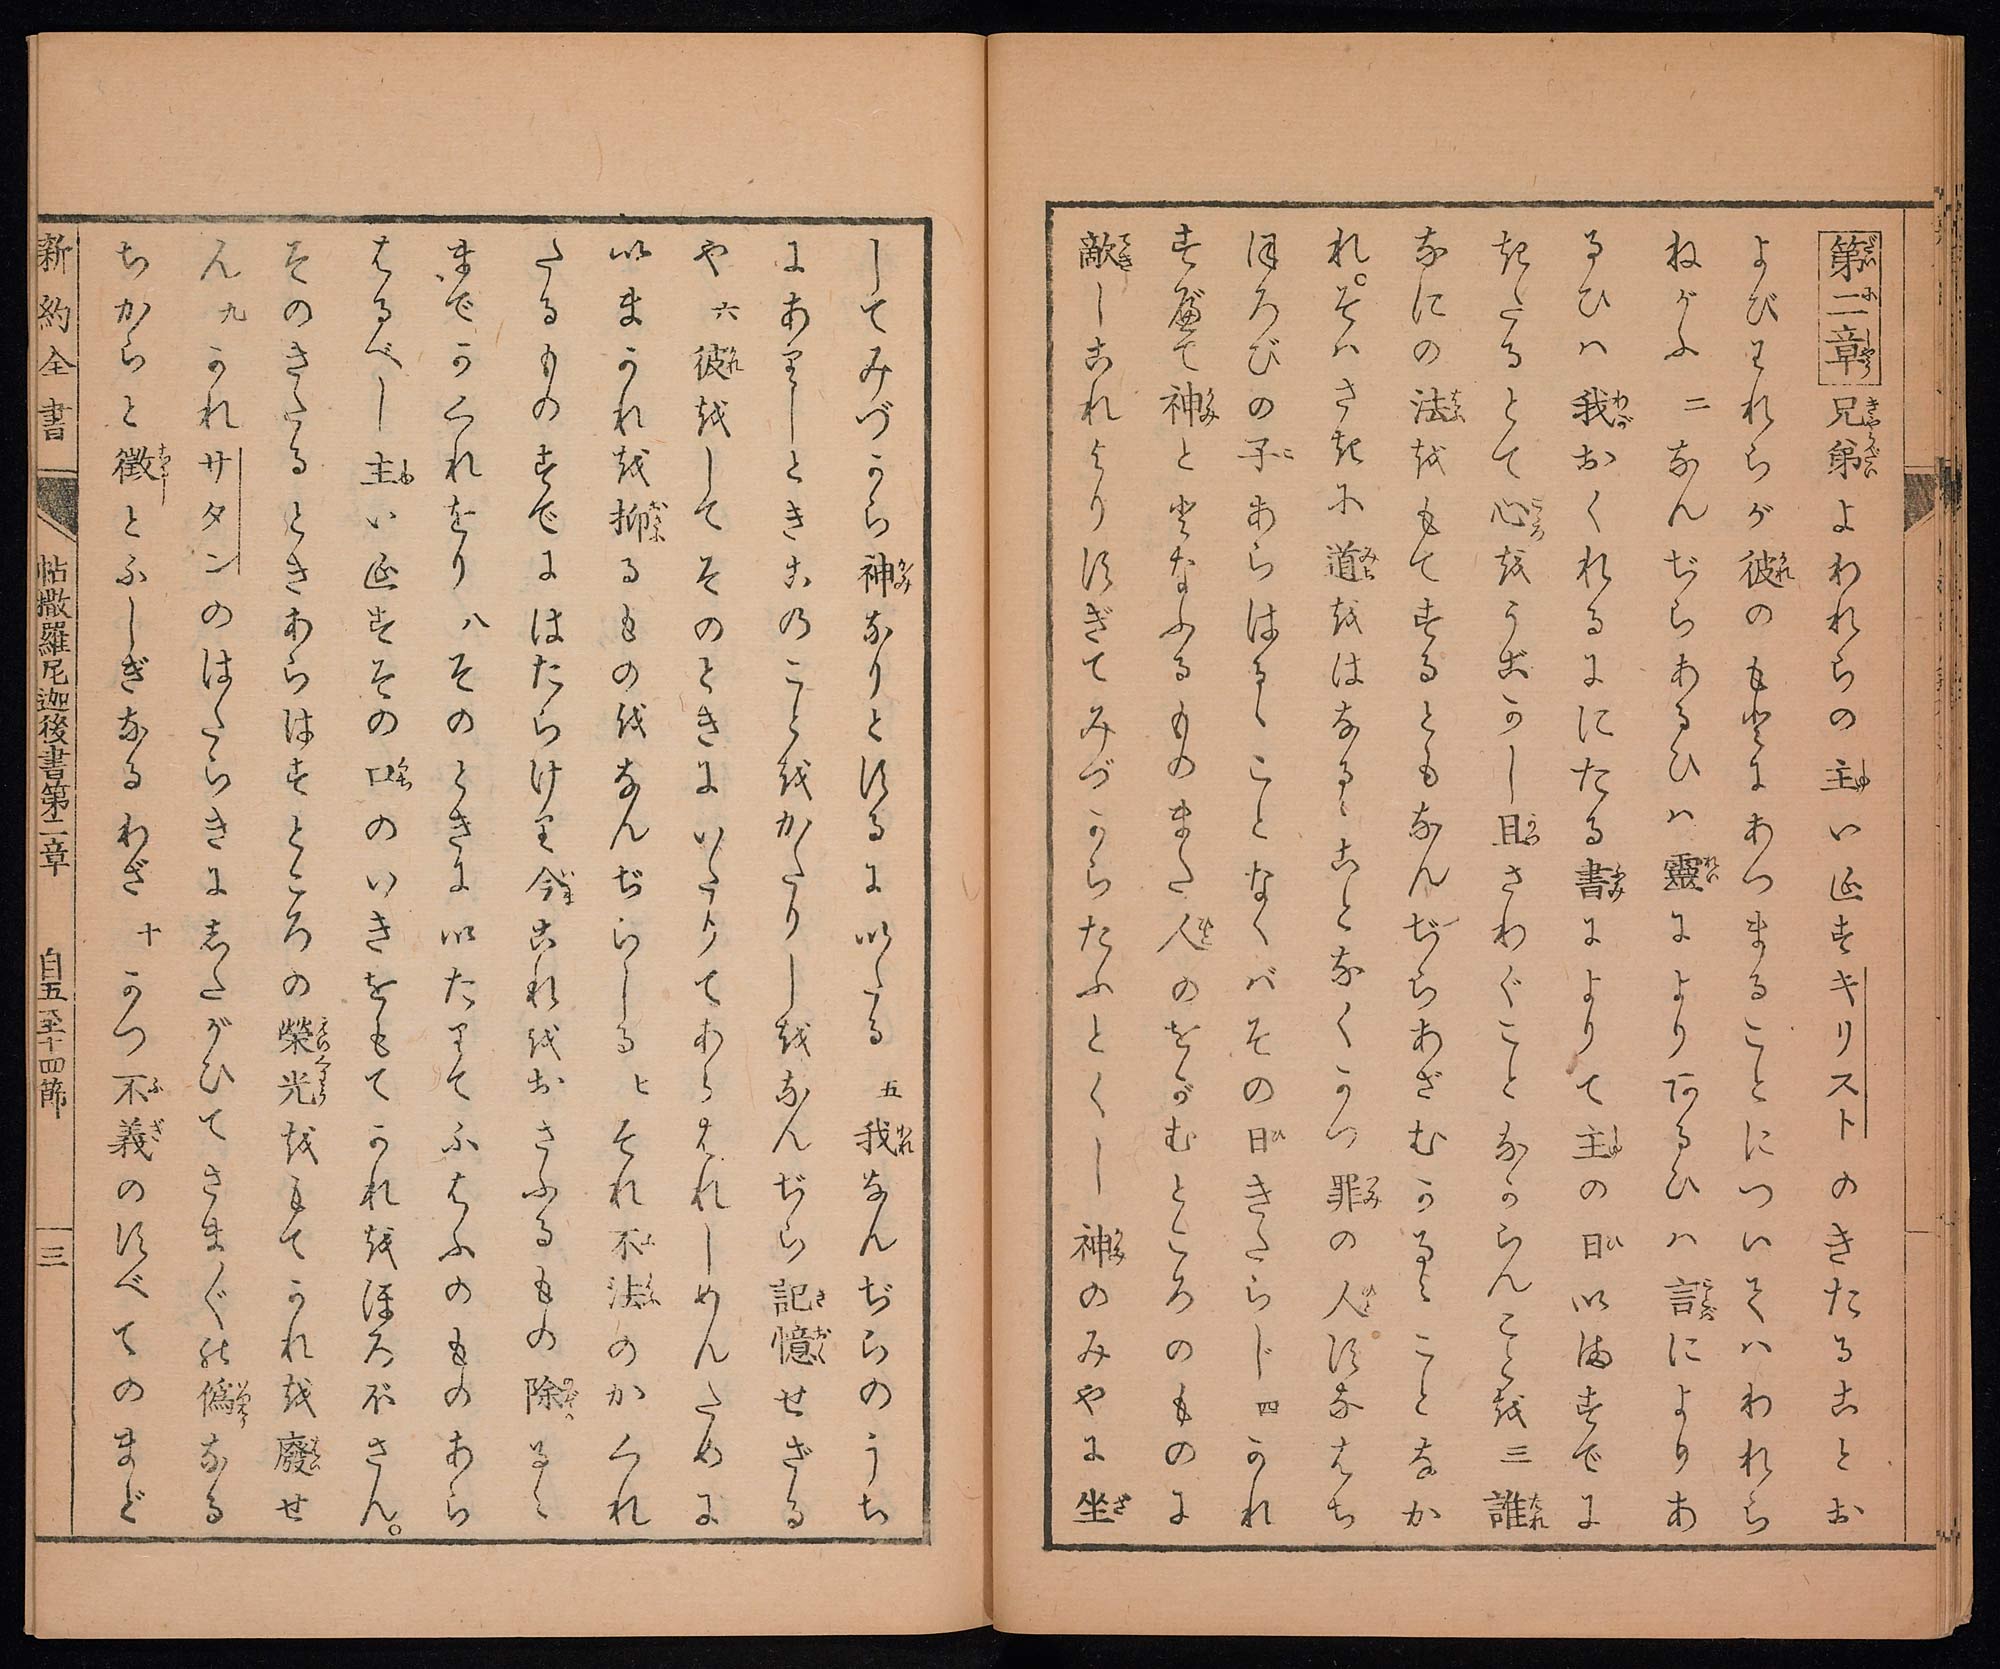 第二章 兄弟よわれらの主いゑすキリストのきたることお
よびわれらが彼のもとにあつまることについてはわれら
ねがふ 二 なんぢらあるひは靈によりあるひは言によりあ
るひは我おくれるににたる書によりて主の日いますでに
きたるとて心をうごかし且さわぐことなからんことを 三 誰
なにの法をもてするともなんぢらあざむかるゝことなか
れ。そはさきに道をはなるゝことなくかつ罪の人すなはち
ほろびの子あらはるゝことなくばその日きたらじ 四 かれ
すべて神ととなふるものまた人のをがむところのものに
敵しこれよりすぎてみづからたふとくし神のみやに坐
してみづから神なりとするにいたる 五 我なんぢらのうち
にありしときこのことをかたりしをなんぢら記憶せざる
や 六 彼をしてそのときにいたりてあらはれしめんために
いまかれを抑るものをなんぢらしる 七 それ不法のかくれ
たるものすでにはたらけり今これをおさふるもの除るゝ
までかくれをり 八 そのときにいたりてふはふのものあら
はるべし主いゑすその口のいきをもてかれをほろぼさん。
そのきたるときあらはすところの榮光をもてかれを廢せ
ん 九 かれサタンのはたらきにしたがひてさま〴〵の僞なる
ちからと徴とふしぎなるわざ 十 かつ不義のすべてのまど
新約全書 帖撒羅尼迦後書第二章 自五至十四節 三